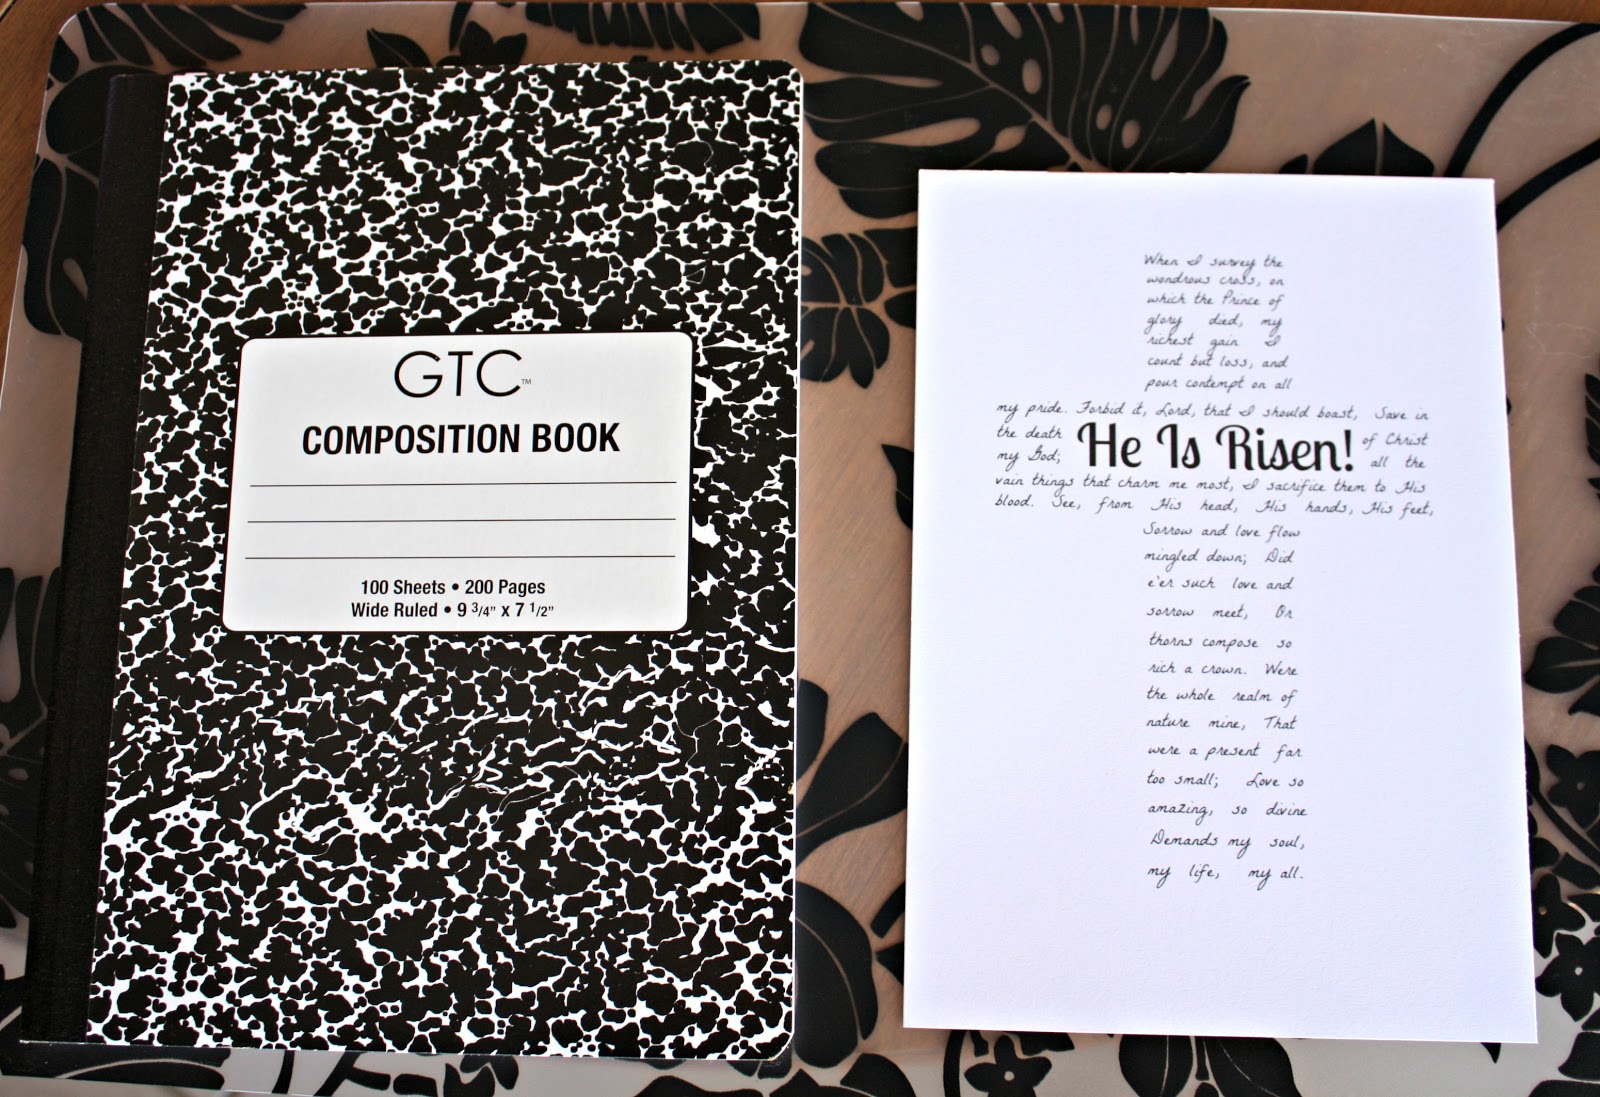 GTC™
COMPOSITION BOOK
100 Sheets • 200 Pages
Wide Ruled • 9 3/4" x 7 1/2"
When I survey the
wondrous cross, on
which the Prince of
glory died, my
richest gain I
count but loss, and
pour contempt on all
my pride. Forbid it, Lord, that I should boast, Save in
the death He Is Risen! of Christ
my God; all the
vain things that charm me most, I sacrifice them to His
blood. See, from His head, His hands, His feet,
Sorrow and love flow
mingled down; Did
e'er such love and
sorrow meet, Or
thorns compose so
rich a crown. Were
the whole realm of
nature mine, That
were a present far
too small; Love so
amazing, so divine
Demands my soul,
my life, my all.